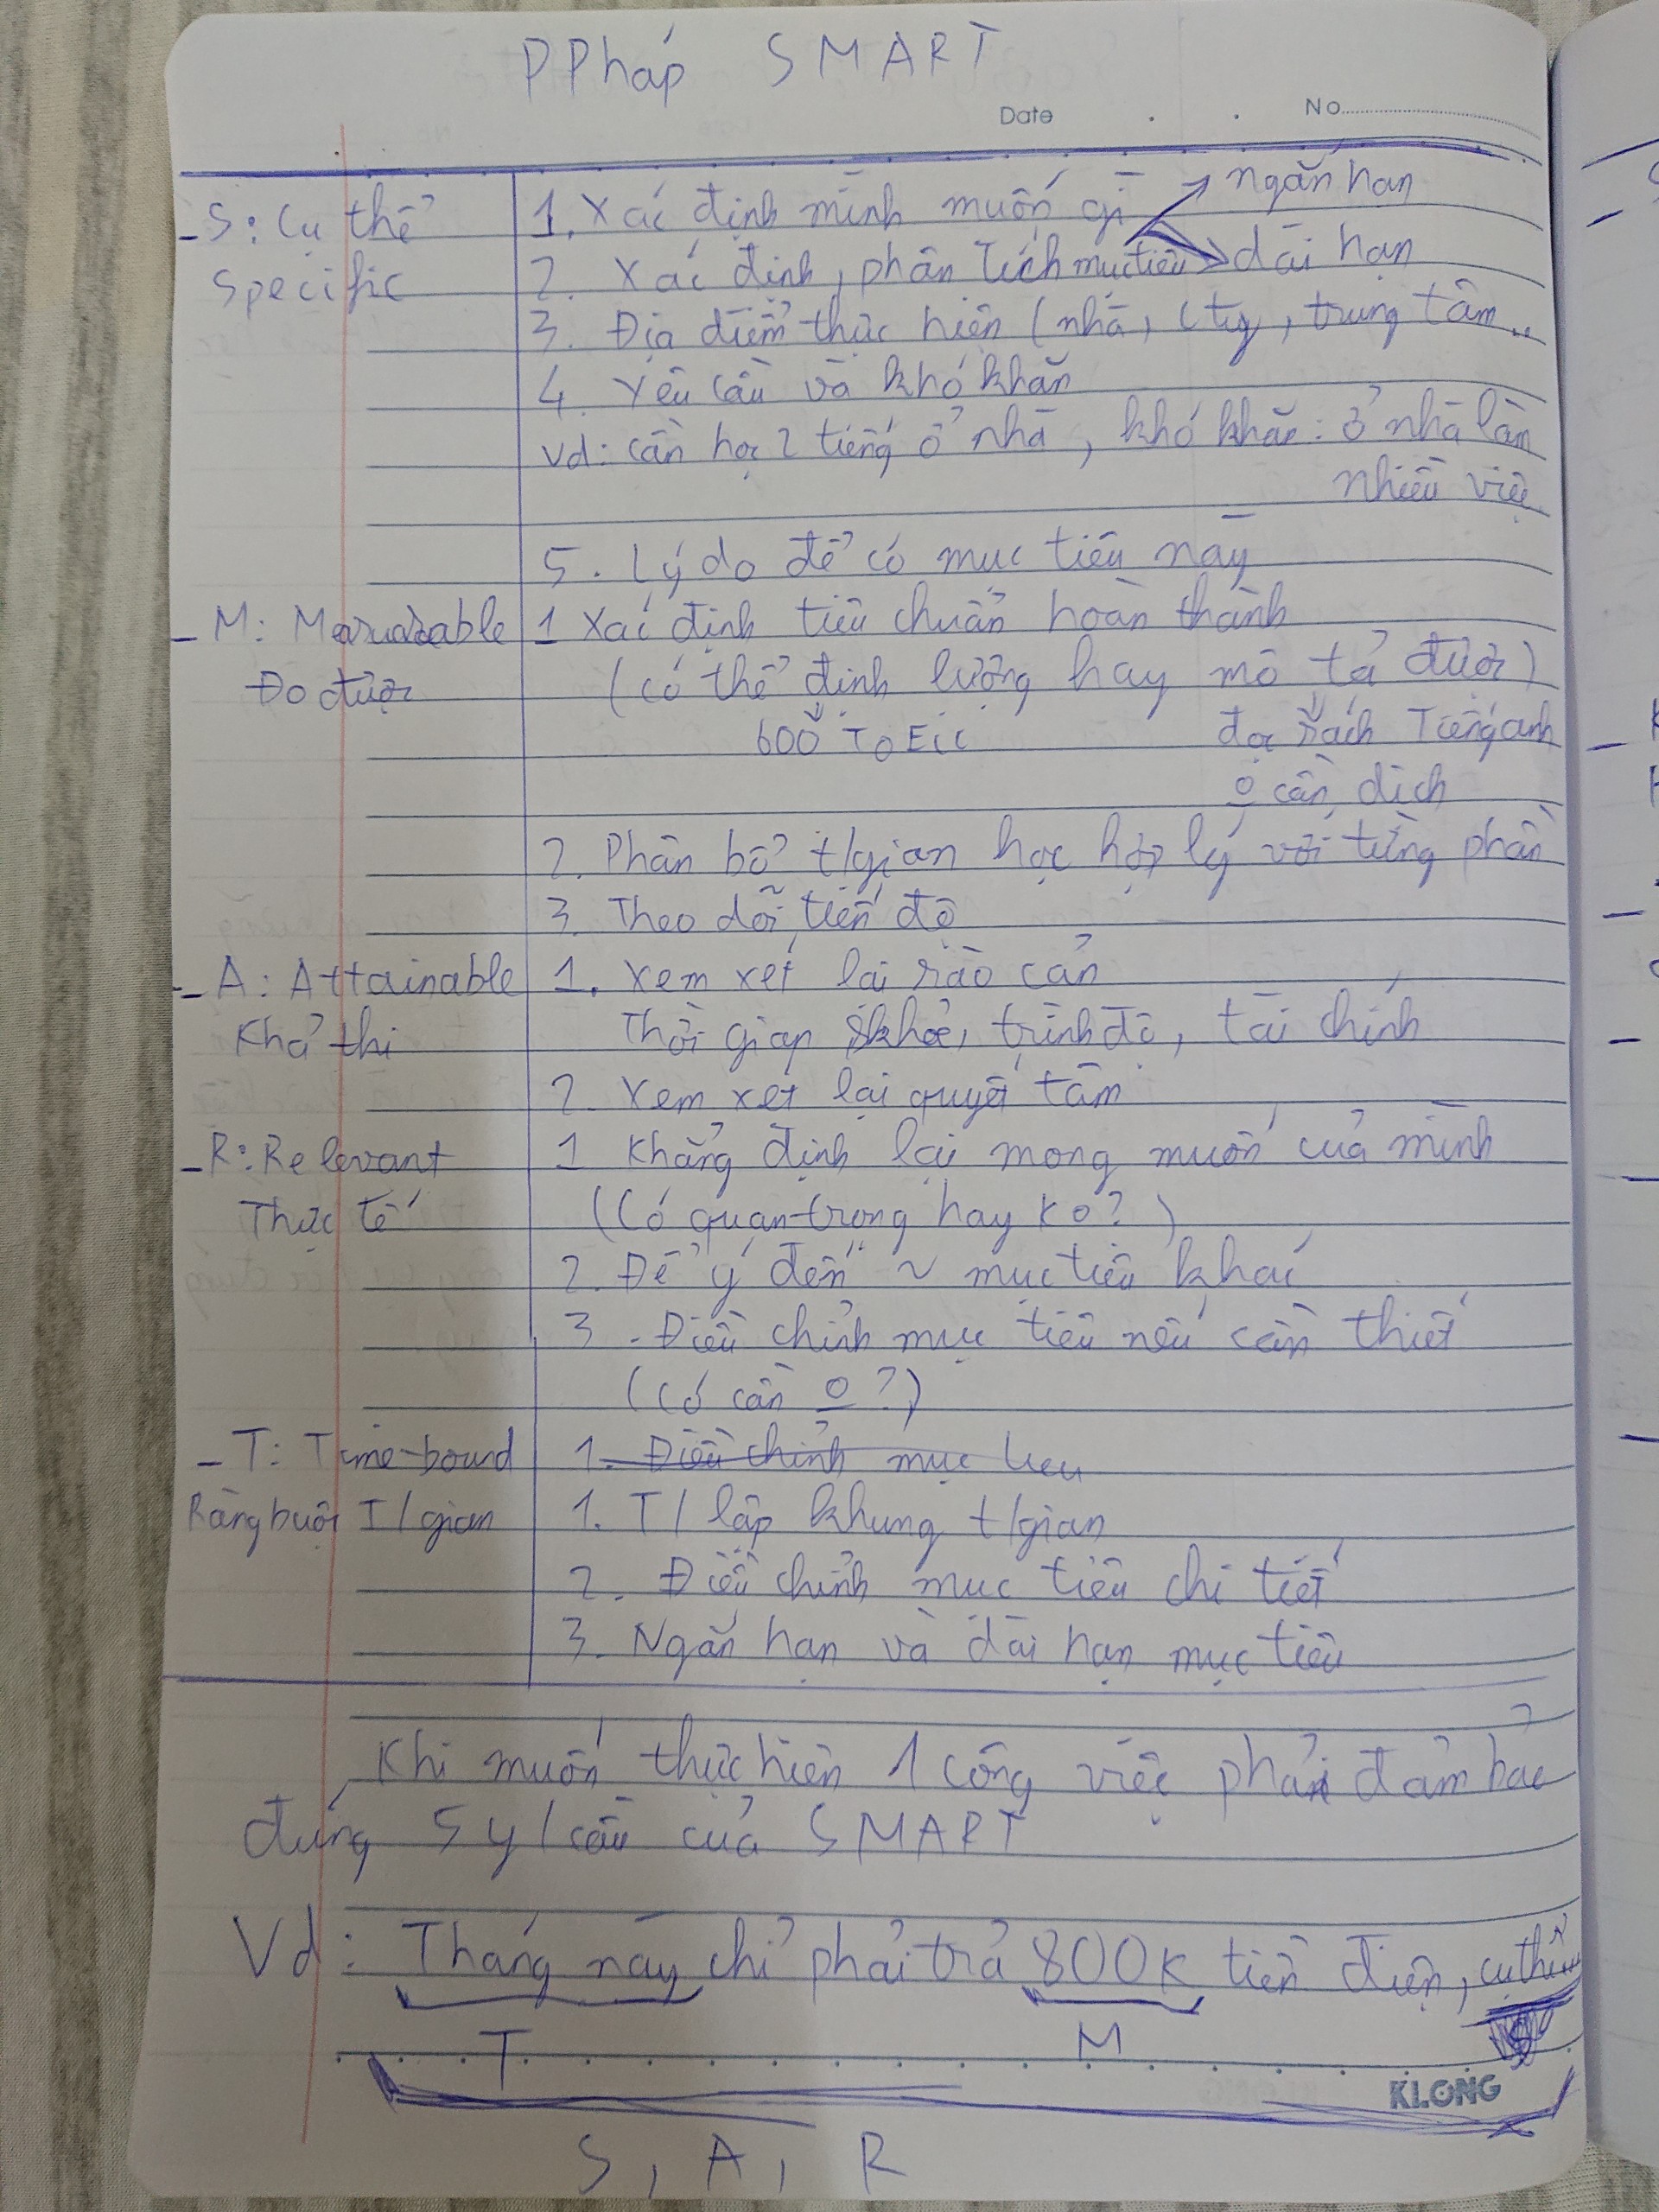 PPháp SMART
Date . . No
_S: Cụ thể
Specific
1. Xác định mình muốn gì
ngắn hạn
dài hạn
2. Xác định, phân tích mục tiêu
3. Địa điểm thực hiện (nhà, cty, trung tâm..
4. Yêu cầu và khó khăn
Vd: cần học 2 tiếng ở nhà, khó khăn: ở nhà làm
nhiều việc
5. Lý do để có mục tiêu này
_M:
Đo được
1 Xác định tiêu chuẩn hoàn thành
(có thể định lượng hay mô tả được)
600 TOEIC
đọc sách Tiếng anh
o cần dịch
2. Phân bổ t/gian học hợp lý với từng phần
3. Theo dõi tiến độ
_A: Attainable
Khả thi
1. Xem xét lại rào cản
Thời gian, skhỏe, trình độ, tài chính
2. Xem xét lại quyết tâm
_R: Relevant
Thực tế
1 Khẳng định lại mong muốn của mình
(Có quan trọng hay ko?)
2. Để ý đến ~ mục tiêu khác
3. Điều chỉnh mục tiêu nếu cần thiết
(Có cần o?)
_T: Time-bound
Ràng buộc T/gian
1. Điều chỉnh mục tiêu
1. T/lập khung t/gian
2. Điều chỉnh mục tiêu chi tiết
3. Ngắn hạn và dài hạn mục tiêu
Khi muốn thực hiện 1 công việc phải đảm bảo
đúng 5 y/cầu của SMART
Vd: Tháng này chỉ phải trả 800k tiền điện, cụ thể
T
M
KLONG
S, A, R